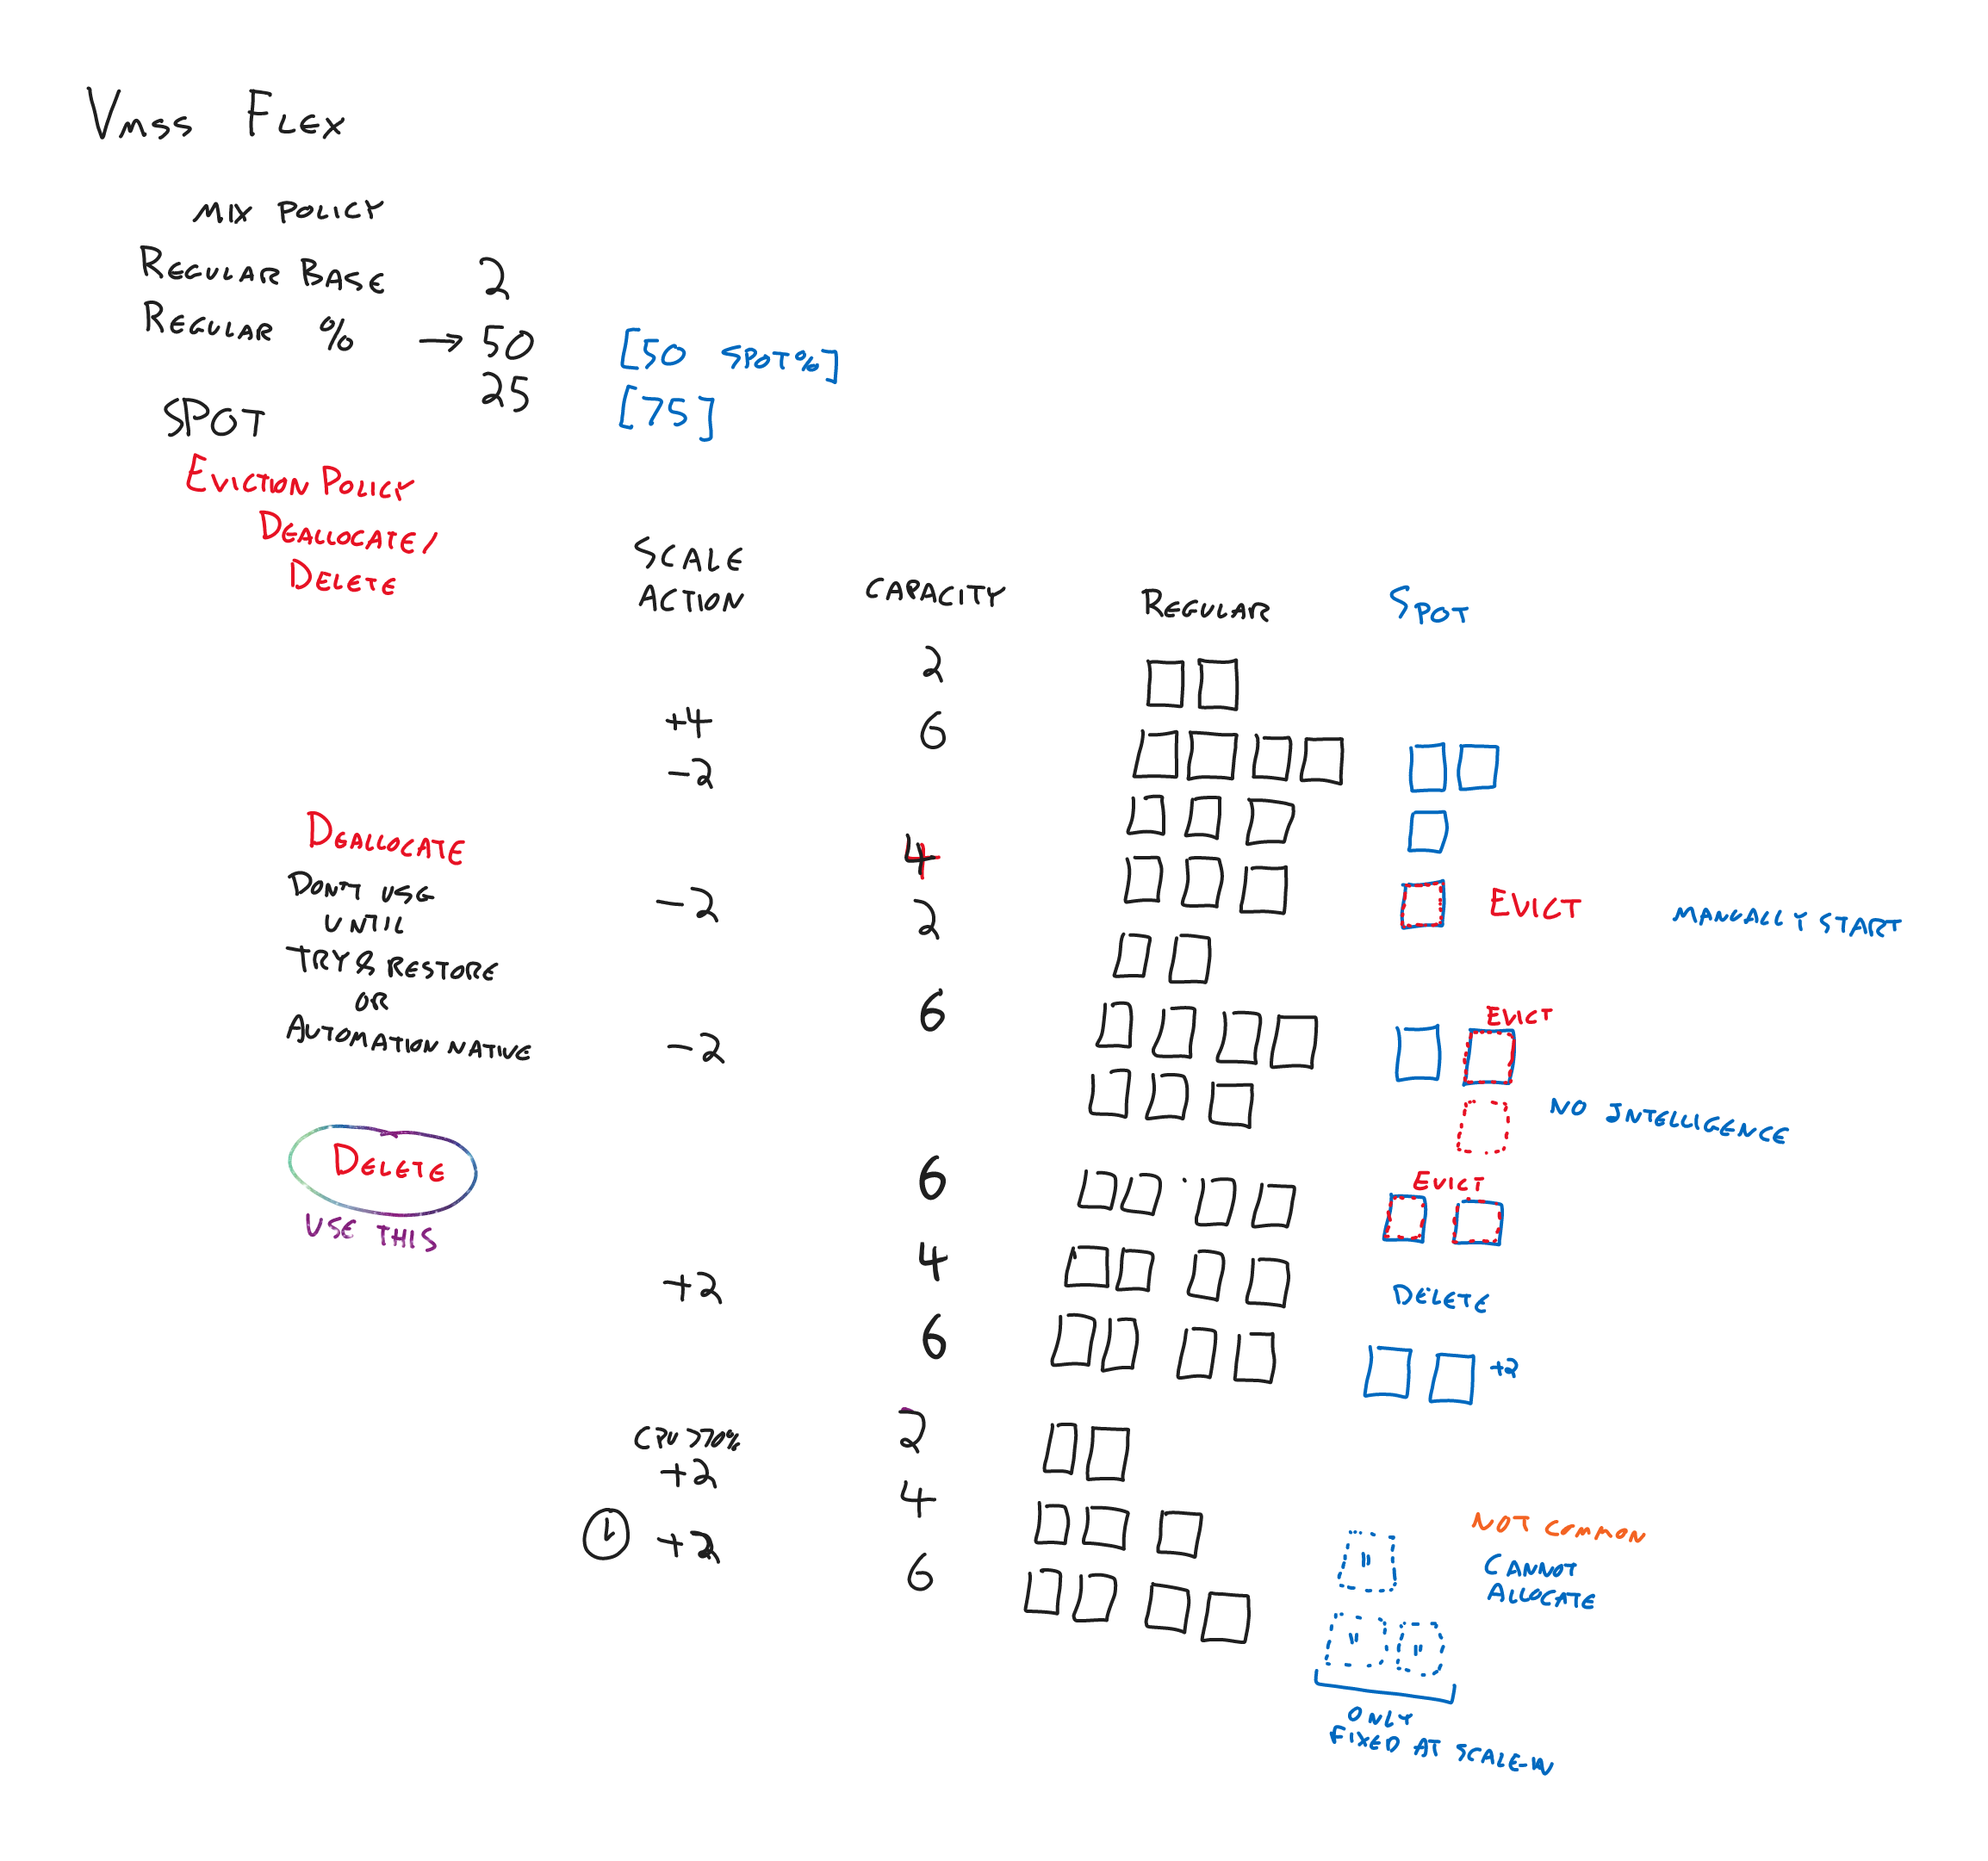 VMSS FLEX
MIX POLICY
REGULAR BASE 2
REGULAR % → 50 [50 SPOT%]
25 [75]
SPOT
EVICTION POLICY
DEALLOCATE/
DELETE
SCALE
ACTION
CAPACITY
REGULAR
SPOT
2
+4
6
-2
DEALLOCATE
4
DON'T USE
UNTIL
TRY & RESTORE
OR
AUTOMATION NATIVE
-2
2
EVICT
MANUALLY START
6
EVICT
-2
NO INTELLIGENCE
DELETE
USE THIS
6
EVICT
4
+2
DELETE
6
+2
CPU >70%
2
+2
4
+2
6
NOT COMMON
CANNOT
ALLOCATE
ONLY
FIXED AT SCALE-IN